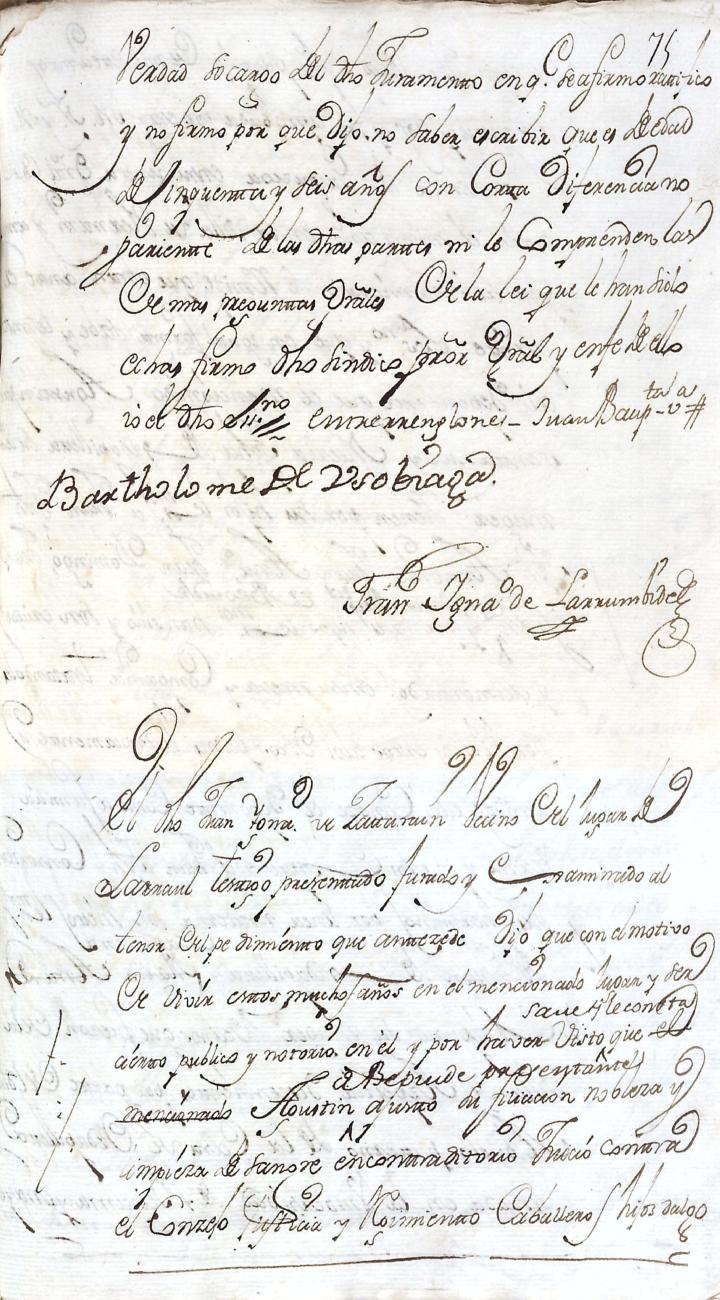 75
Verdad socargo del dho Juramento en q.e se afirmo ratifico
y no firmo por que Dijo no saber escribir que es de edad
de Cinquenta y seis años con Corta Diferencia no
pariente de las dhas partes ni le Comprenden las
demas preguntas Grāles de la lei que le han sido
echas firmo dho sindico prōr Grāl y en fe de ello
io el dho ss.no entrerrenglones - Juan Baup.ta - v.a
Bartholome de Usobiaga
Fran.co Igna.o de Larrumbide
El dho Juan de Zatarain Vecino del lugar de
Larraul testigo presentado jurado y Examinado al
tenor del pedimento que antezede Dijo que con el motivo
de vivir estos muchos años en el mencionado lugar y ser
save y le consta
cierto publico y notorio en el y por haver Visto que el
presentante
mencionado Agustin su filiacion nobleza y
limpieza de sangre en contraditorio Juicio contra
el Conzejo Justicia y Rejimiento Caballeros hijos dalgo